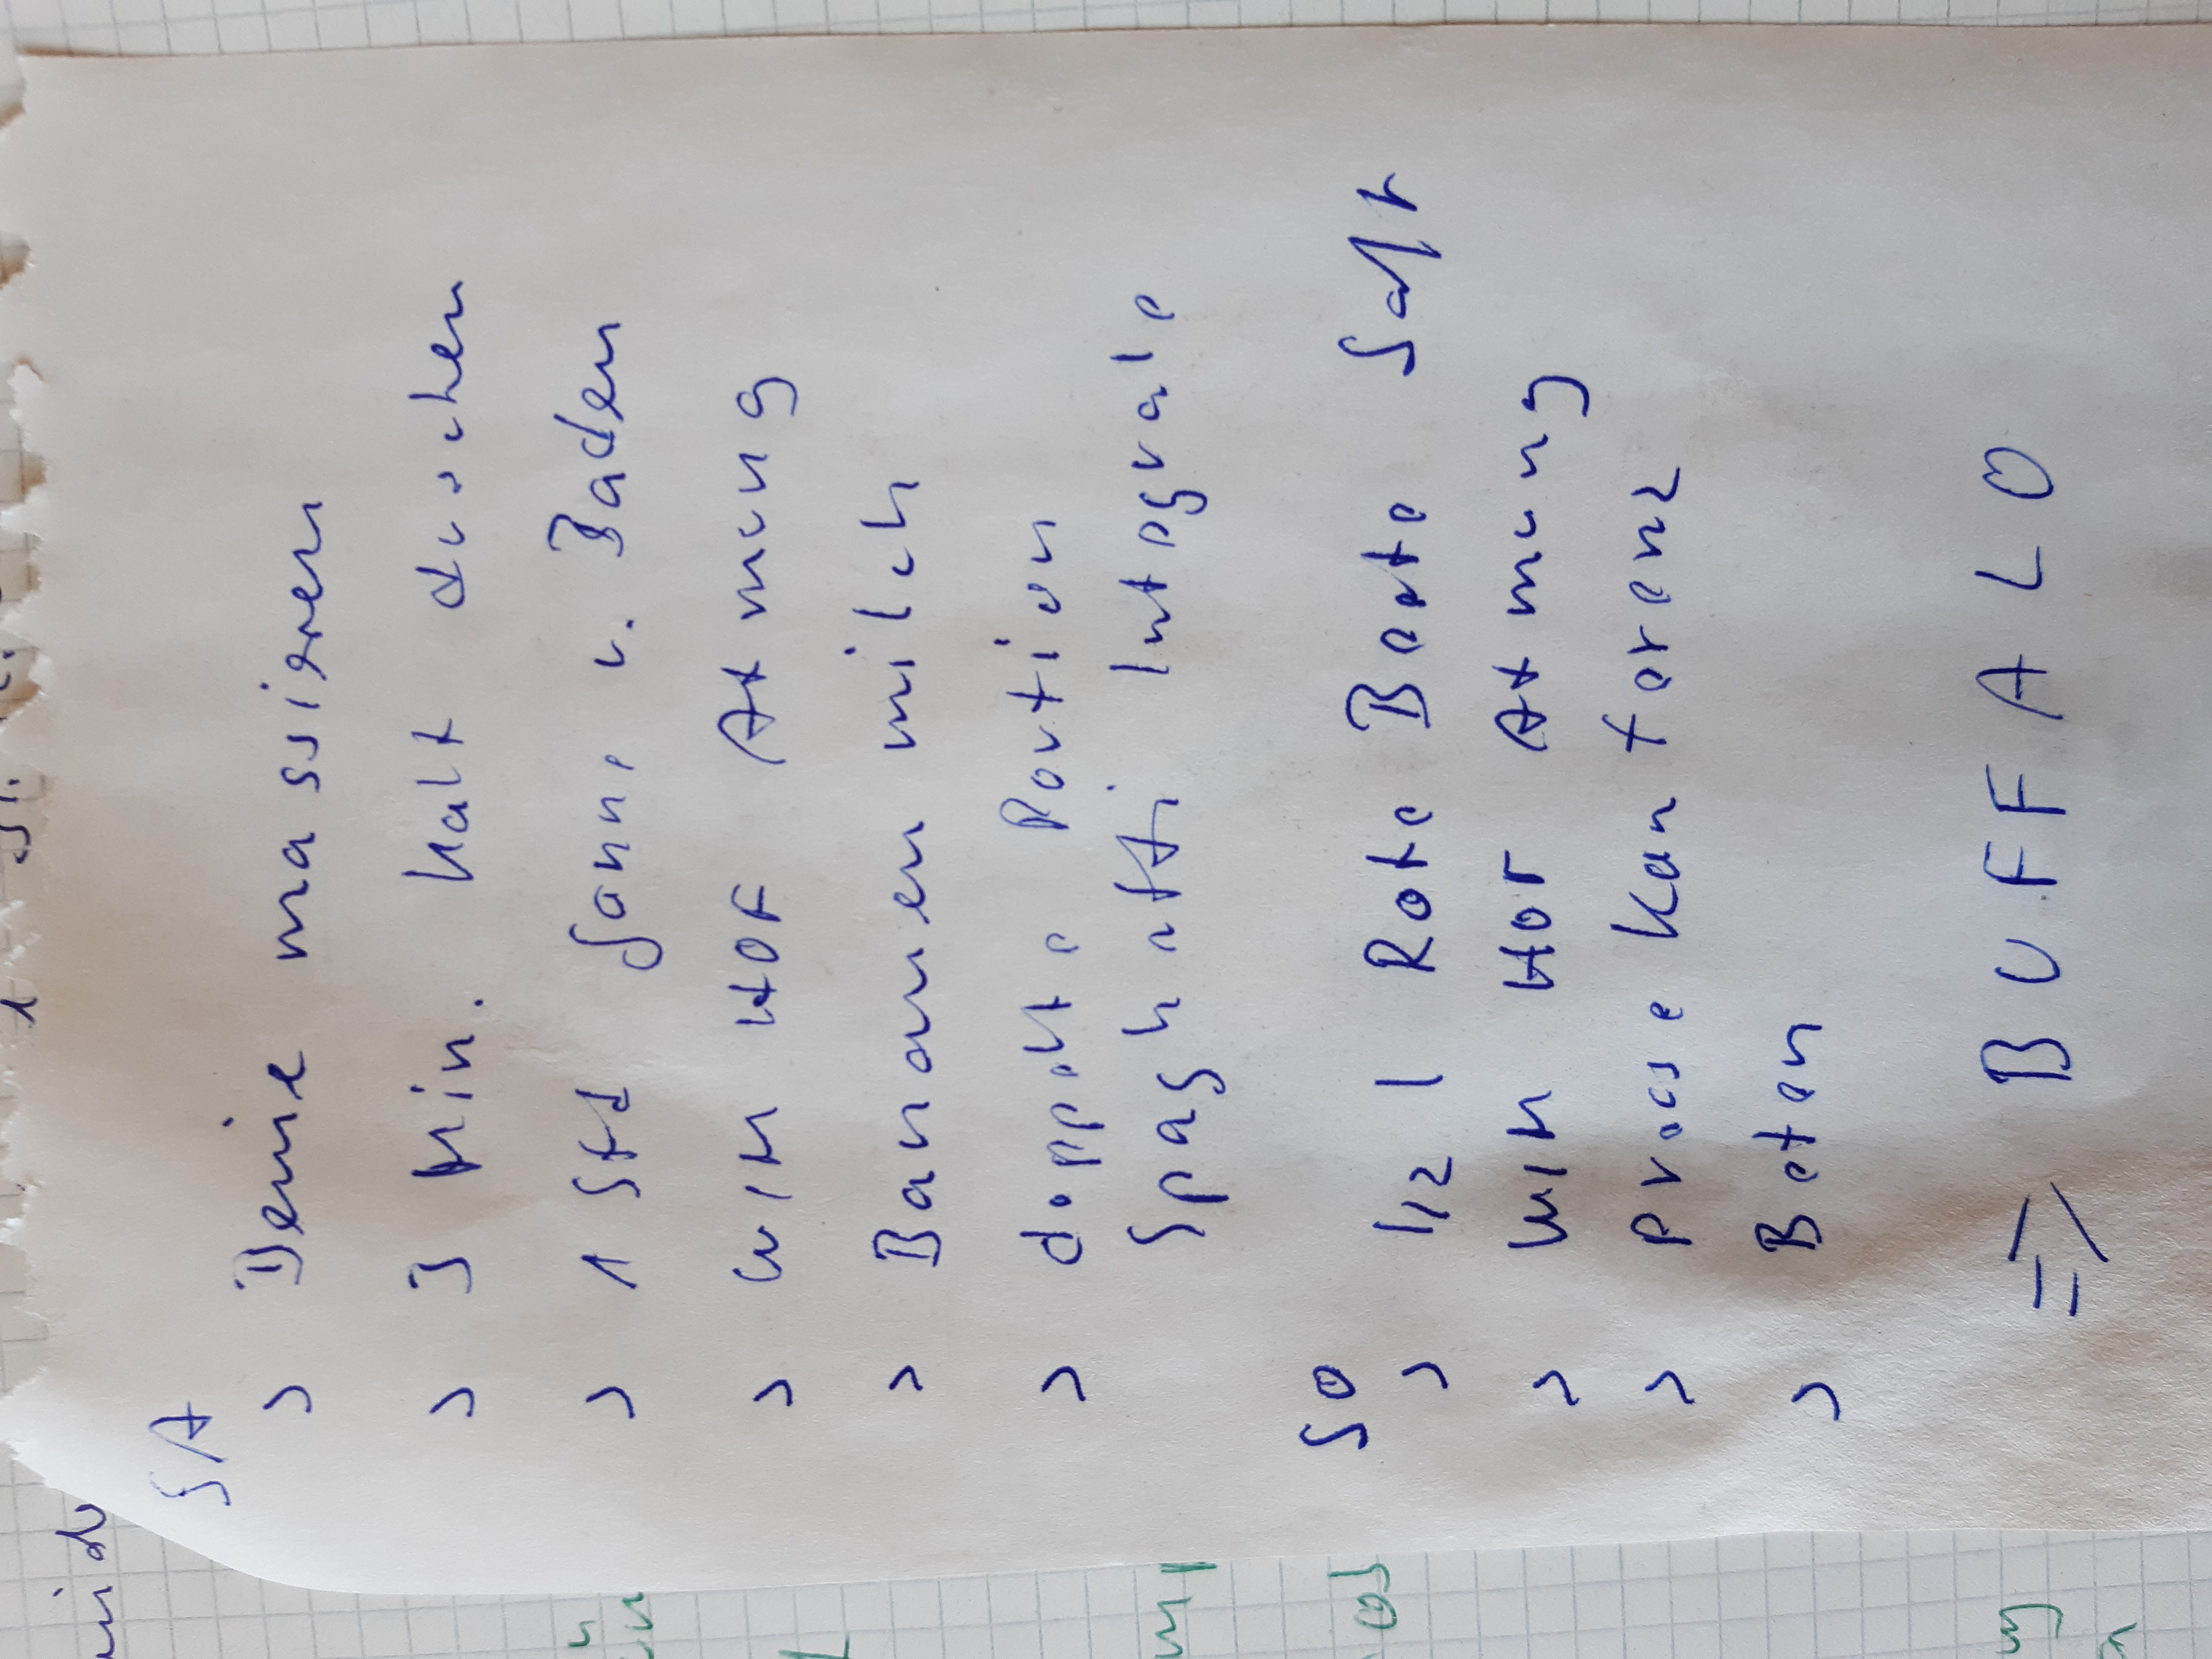 SA
> Beine massieren
> 3 Min. kalt duschen
> 1 Std Sonne u. Baden
> WIM HOF Atmung
> Bananen milch
> doppelte Portion
Spaghetti Integrale
SO
> 1/2 l Rote Beete Saft
> WIM HOF Atmung
> Prosekan forenz
> Beten
=> BUFFALO